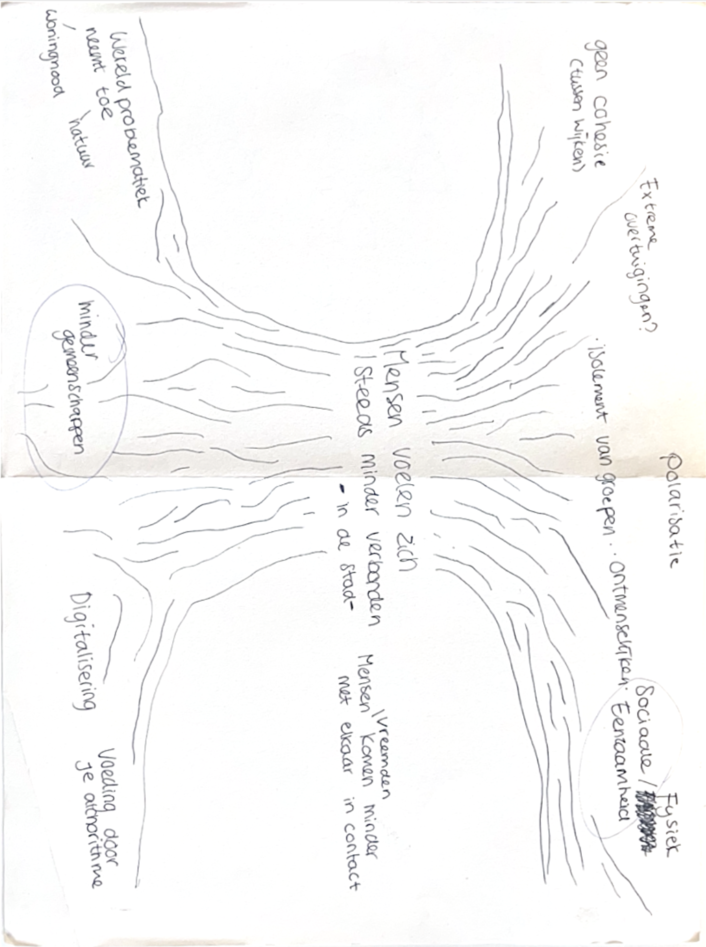 Polarisatie
Extreme
overtuigingen?
geen cohesie
(tussen wijken)
·isolement van groepen·
·ontmenselijken·
Sociaale / Fysiek
Eenzaamheid
Mensen voelen zich
steeds minder verbonden
- in de stad-
vreemden
Mensen komen minder
met elkaar in contact
Wereld problematiek
neemt toe
natuur
woningnood
minder
gemeenschappen
Digitalisering
Voeding door
je althorithme